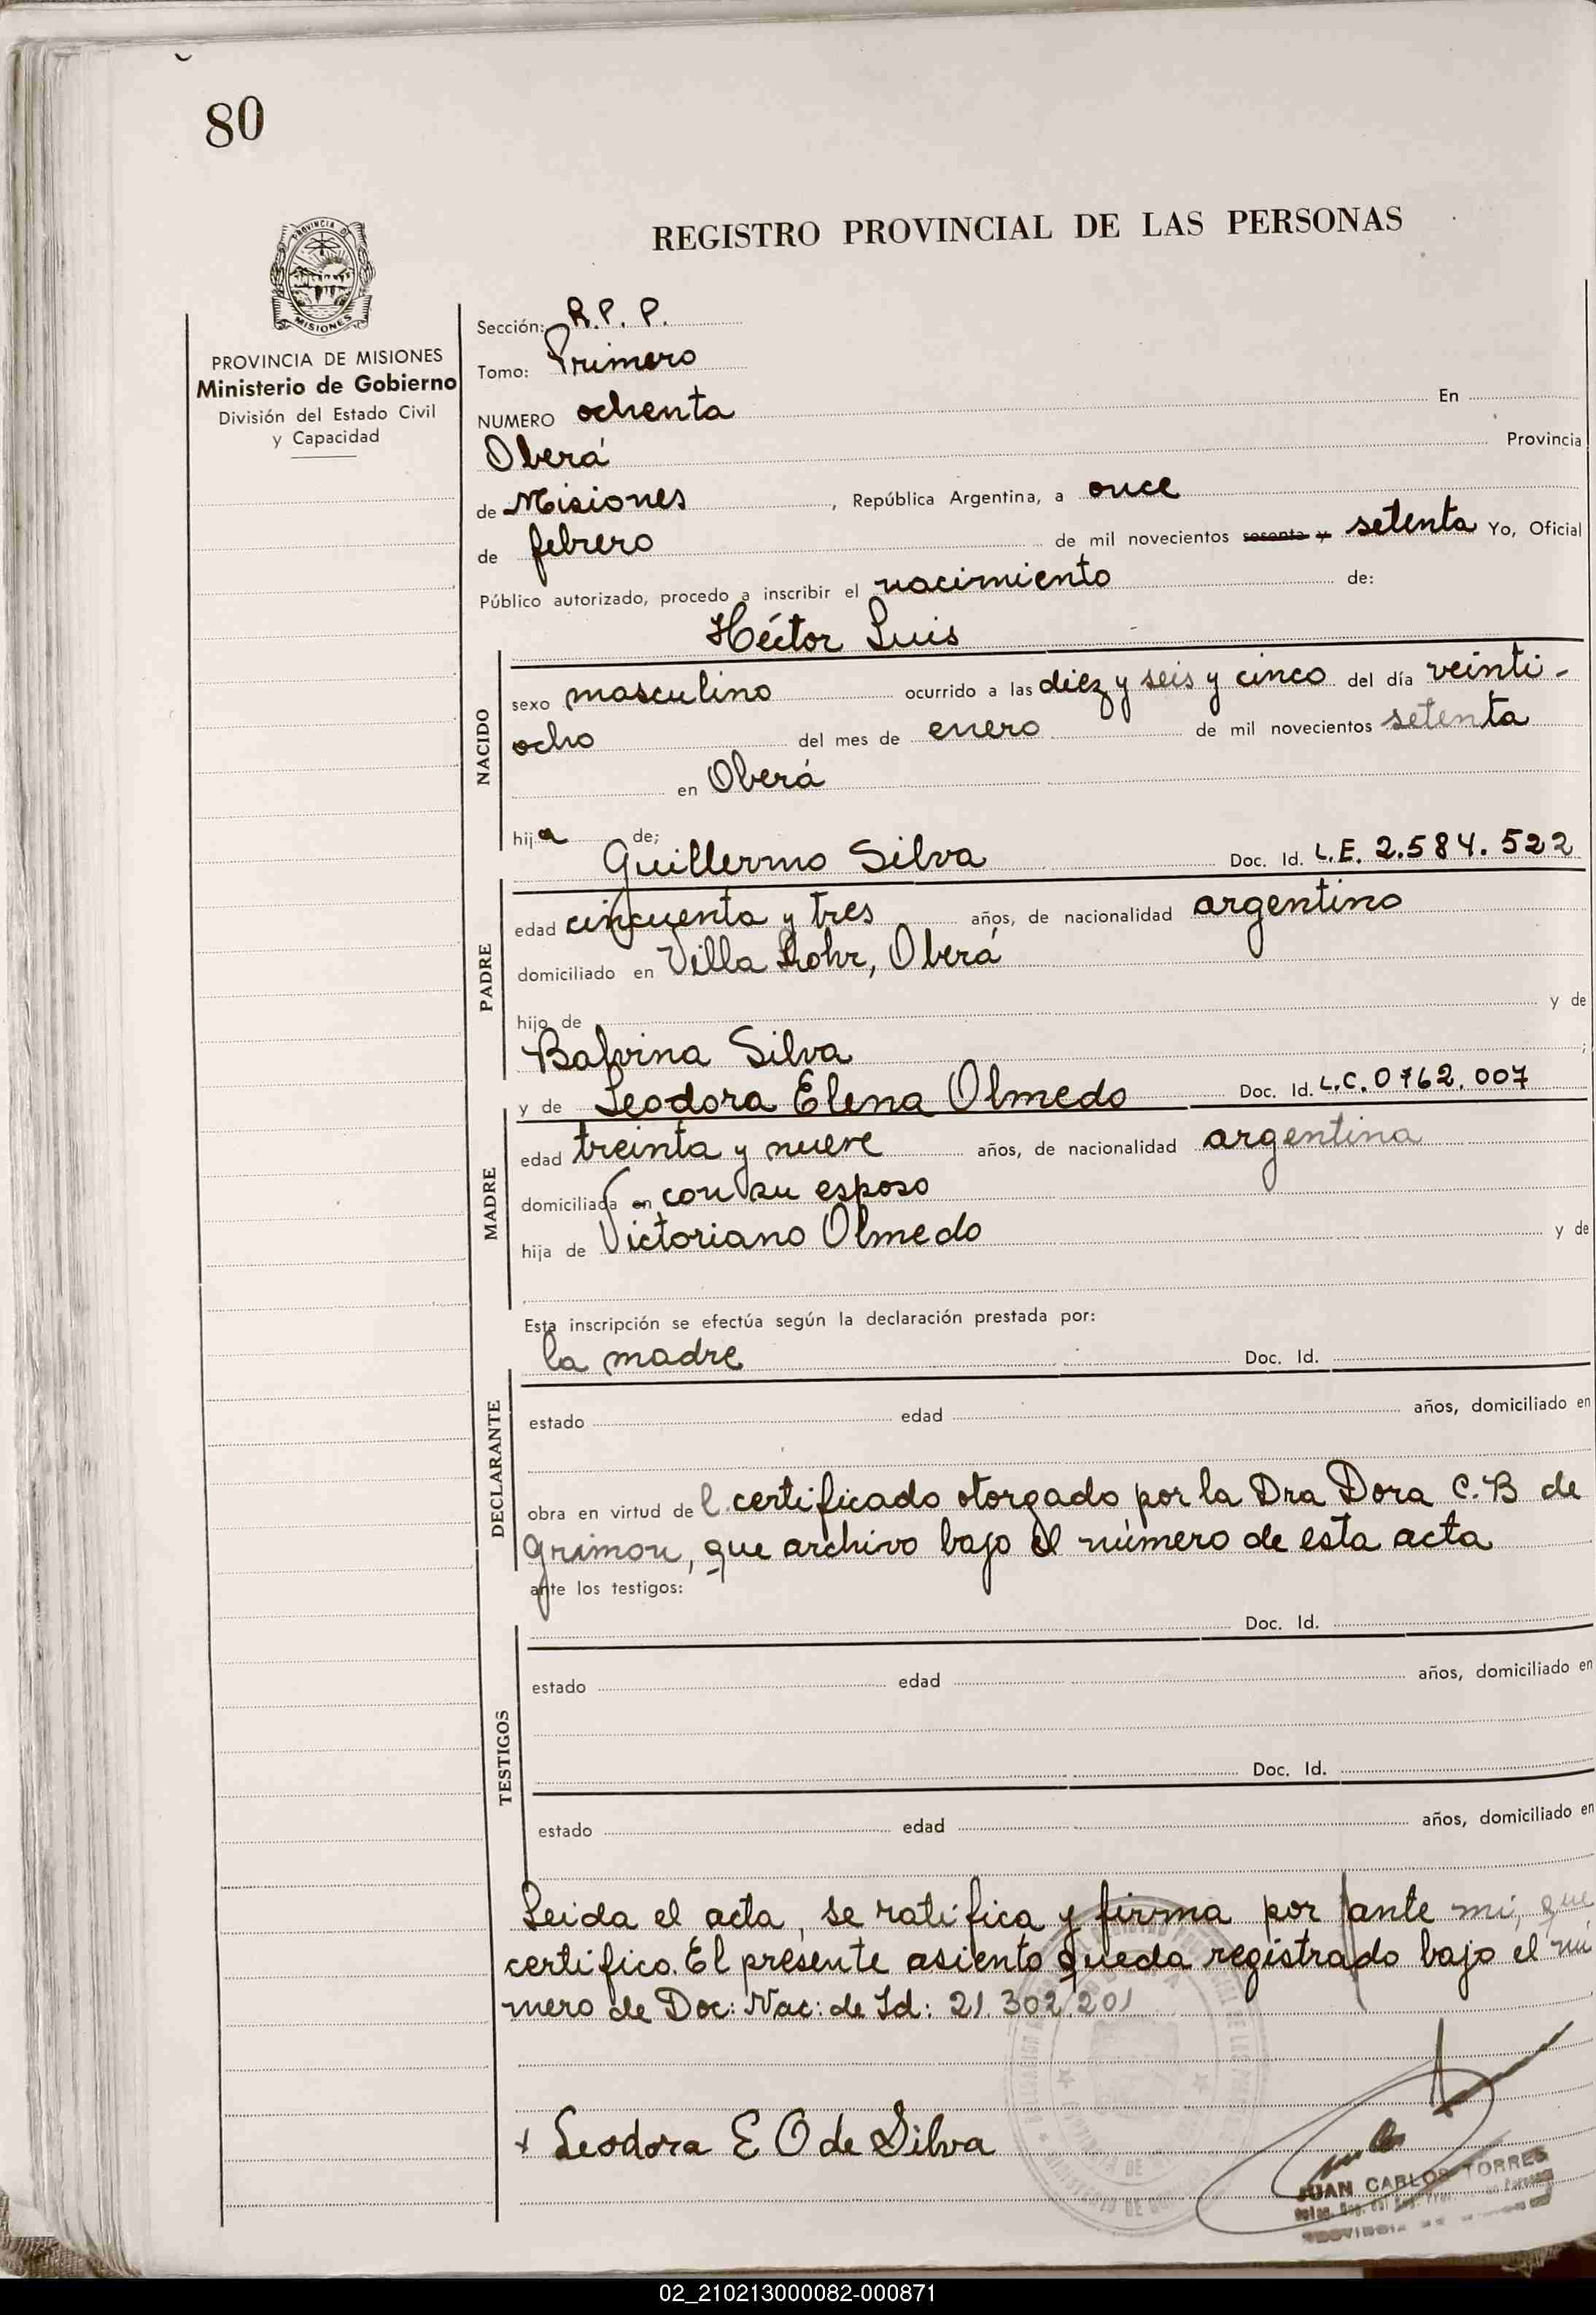 80
PROVINCIA DE
MISIONES
PROVINCIA DE MISIONES
Ministerio de Gobierno
División del Estado Civil
y Capacidad
REGISTRO PROVINCIAL DE LAS PERSONAS
Sección: R.P.P.
Tomo: Primero
NUMERO ochenta En
Oberá Provincia
de Misiones, República Argentina, a once
de febrero de mil novecientos sesenta y setenta Yo, Oficial
Público autorizado, procedo a inscribir el nacimiento de:
Héctor Luis
NACIDO
sexo masculino ocurrido a las diez y seis y cinco del día veinti-
ocho del mes de enero de mil novecientos setenta
en Oberá
hija de;
Guillermo Silva Doc. Id. L.E. 2.584.522
PADRE
edad cincuenta y tres años, de nacionalidad argentino
domiciliado en Villa Rohr, Oberá
hijo de y de
Balvina Silva ;
y de Leodora Elena Olmedo Doc. Id. L.C. 0762.007
MADRE
edad treinta y nueve años, de nacionalidad argentina
domiciliada en con su esposo
hija de Victoriano Olmedo y de
Esta inscripción se efectúa según la declaración prestada por:
la madre Doc. Id.
DECLARANTE
estado edad años, domiciliado en
obra en virtud del certificado otorgado por la Dra Dora C. B de
Grimon, que archivo bajo el número de esta acta
ante los testigos:
Doc. Id.
TESTIGOS
estado edad años, domiciliado en
Doc. Id.
estado edad años, domiciliado en
Leida el acta, se ratifica y firma por ante mi, que
certifico. El presente asiento queda registrado bajo el nú
mero de Doc: Nac: de Id: 21.302.201
Leodora E O de Silva
JUAN CARLOS TORRES
02_210213000082-000871